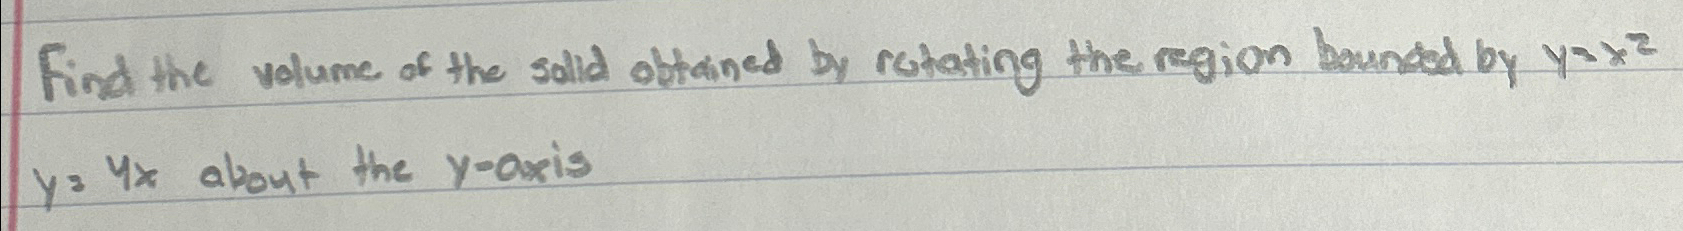 Find the volume of the solid obtained by rotating the region bounded by y=x²
y=4x about the y-axis